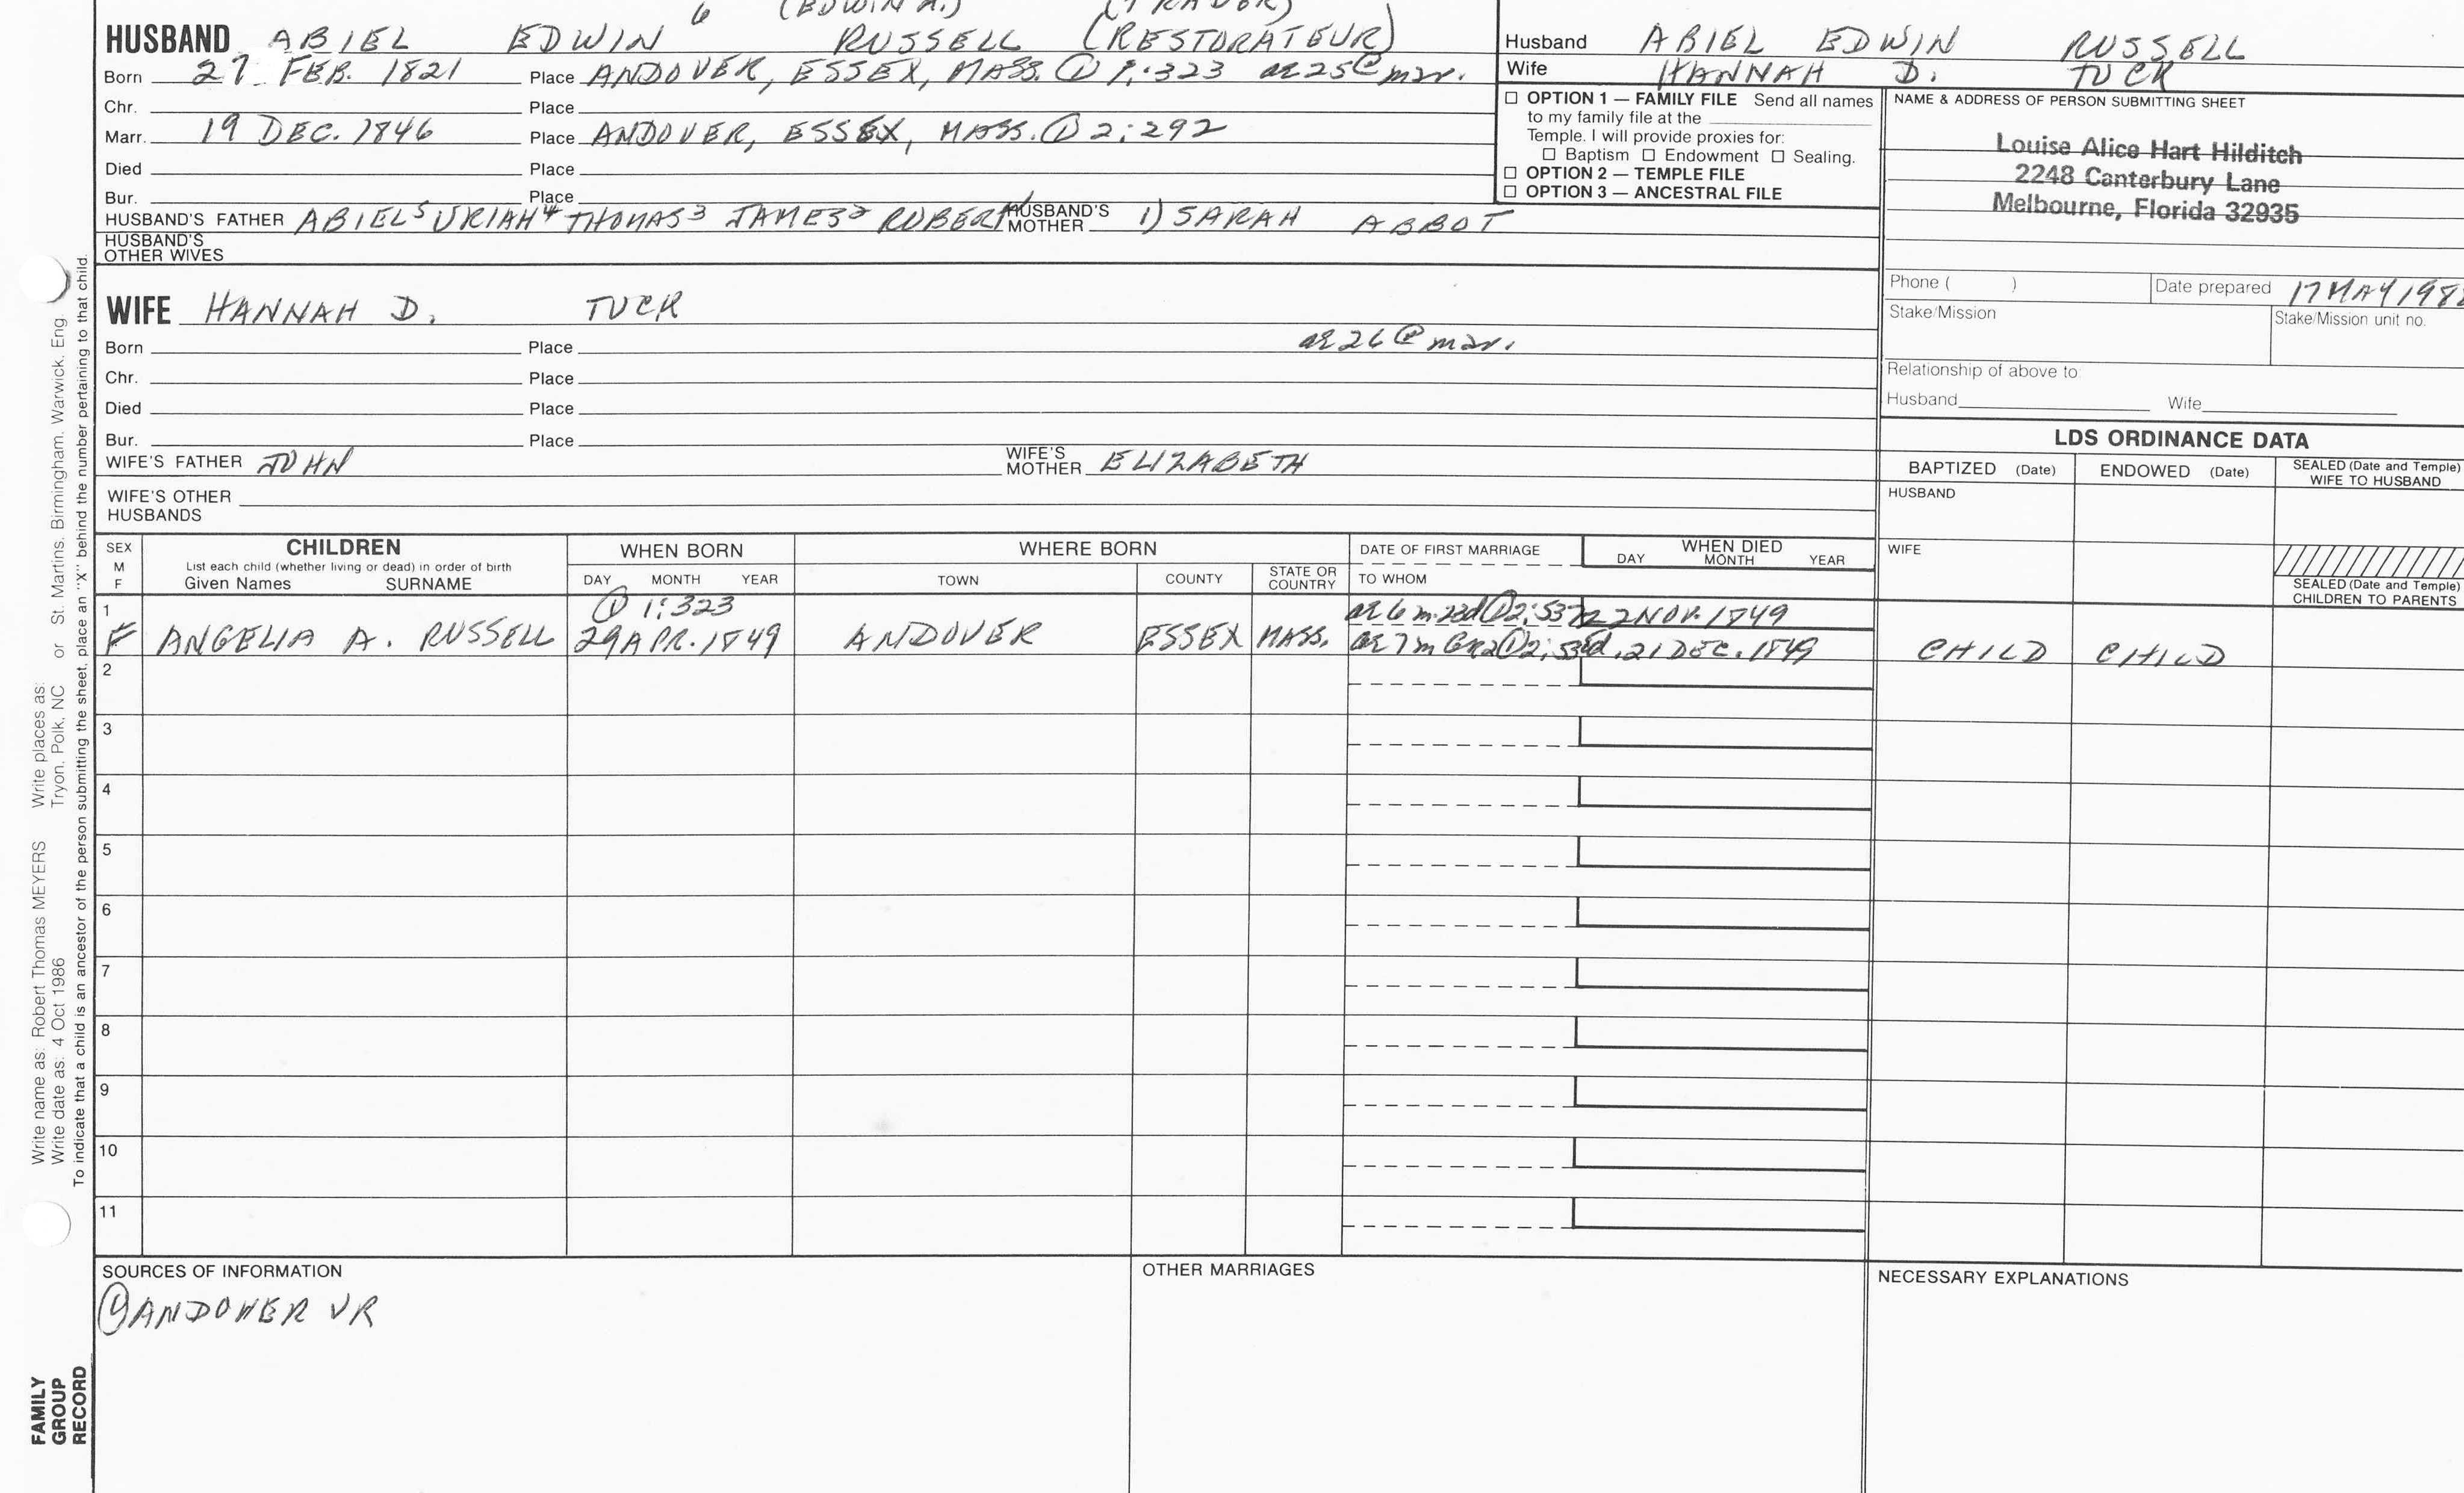 6 (EDWIN A.) (TRADER)
HUSBAND ABIEL EDWIN RUSSELL (RESTORATEUR)
Born 27 FEB. 1821 Place ANDOVER, ESSEX, MASS. ① 1:323 ae 25 @ mar.
Chr. Place
Marr. 19 DEC. 1846 Place ANDOVER, ESSEX, MASS. ① 2:292
Died Place
Bur. Place
HUSBAND'S FATHER ABIEL⁵ URIAH⁴ THOMAS³ JAMES² ROBERT¹ HUSBAND'S MOTHER 1) SARAH ABBOT
HUSBAND'S
OTHER WIVES
Husband ABIEL EDWIN RUSSELL
Wife HANNAH D. TUCK
☐ OPTION 1 — FAMILY FILE Send all names
to my family file at the
Temple. I will provide proxies for:
☐ Baptism ☐ Endowment ☐ Sealing.
☐ OPTION 2 — TEMPLE FILE
☐ OPTION 3 — ANCESTRAL FILE
NAME & ADDRESS OF PERSON SUBMITTING SHEET
Louise Alice Hart Hilditch
2248 Canterbury Lane
Melbourne, Florida 32935
Phone ( ) Date prepared 17 MAY 198
Stake/Mission Stake/Mission unit no.
Relationship of above to:
Husband Wife
WIFE HANNAH D. TUCK
ae 26 @ mar.
Born Place
Chr. Place
Died Place
Bur. Place
WIFE'S FATHER JOHN WIFE'S MOTHER ELIZABETH
WIFE'S OTHER
HUSBANDS
LDS ORDINANCE DATA
BAPTIZED (Date) ENDOWED (Date) SEALED (Date and Temple)
WIFE TO HUSBAND
HUSBAND
WIFE
SEALED (Date and Temple)
CHILDREN TO PARENTS
SEX
M
F
CHILDREN
List each child (whether living or dead) in order of birth
Given Names SURNAME
WHEN BORN
DAY MONTH YEAR
WHERE BORN
TOWN COUNTY STATE OR COUNTRY
DATE OF FIRST MARRIAGE
TO WHOM
WHEN DIED
DAY MONTH YEAR
1 ① 1:323 ae 6 m. 23d ① 2:537 22 NOV. 1849
F ANGELIA A. RUSSELL 29 APR. 1849 ANDOVER ESSEX MASS. ae 7 m ① 2:53 d. 21 DEC. 1849 CHILD CHILD
2
3
4
5
6
7
8
9
10
11
SOURCES OF INFORMATION
① ANDOVER VR
OTHER MARRIAGES
NECESSARY EXPLANATIONS
Write name as: Robert Thomas MEYERS Write places as:
Write date as: 4 Oct 1986 Tryon, Polk, NC or St. Martins, Birmingham, Warwick, Eng.
To indicate that a child is an ancestor of the person submitting the sheet, place an "X" behind the number pertaining to that child.
FAMILY
GROUP
RECORD